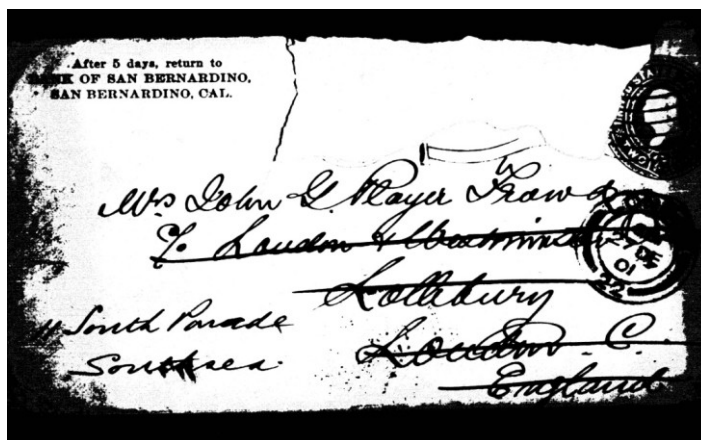 After 5 days, return to
BANK OF SAN BERNARDINO,
SAN BERNARDINO, CAL.
Mrs John G. Player Frowd
℅ London & Westminster
Lothbury
London . C.
England
11 South Parade
Southsea.
DE
01
22